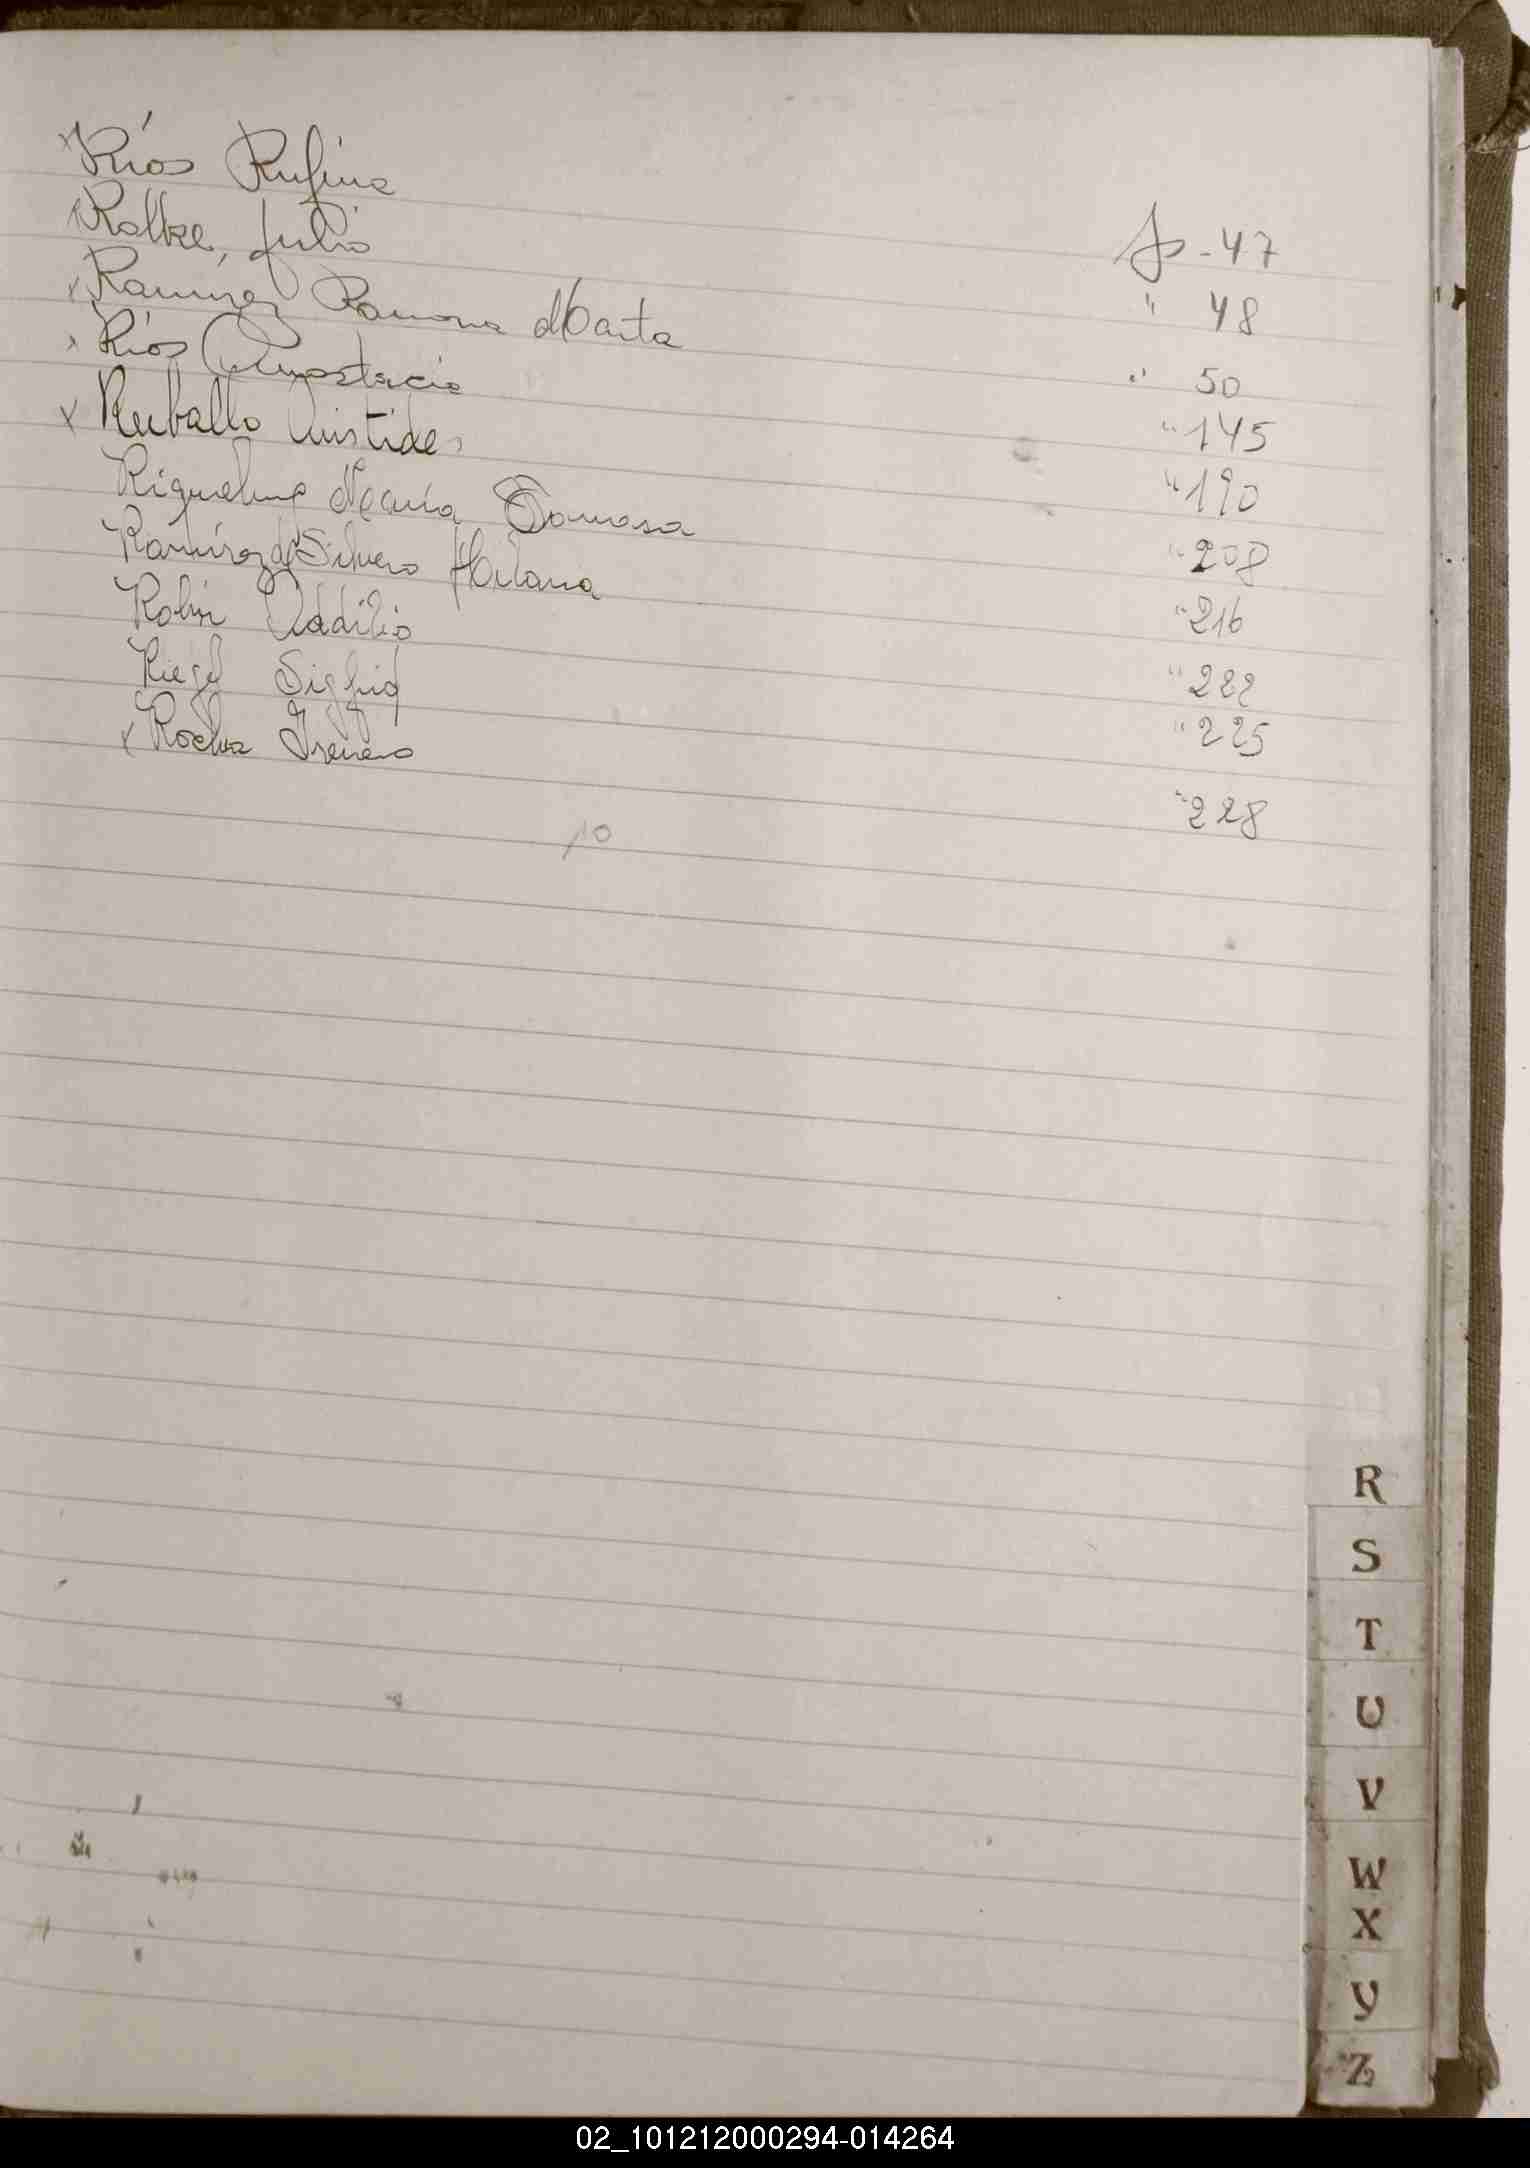 x Ríos Rufina fs - 47
x Rolke, Julio " 48
x Ramírez Ramona Marta " 50
x Ríos Anastacio " 145
x Ruballo Aristides " 190
Riquelme María Tomasa " 208
Ramírez de Silvero Hilaria " 216
Robi Oddilio " 222
Riegel Sigfrid " 225
x Rocha Ireneo " 228
10
R
S
T
U
V
W
X
Y
Z
02_101212000294-014264